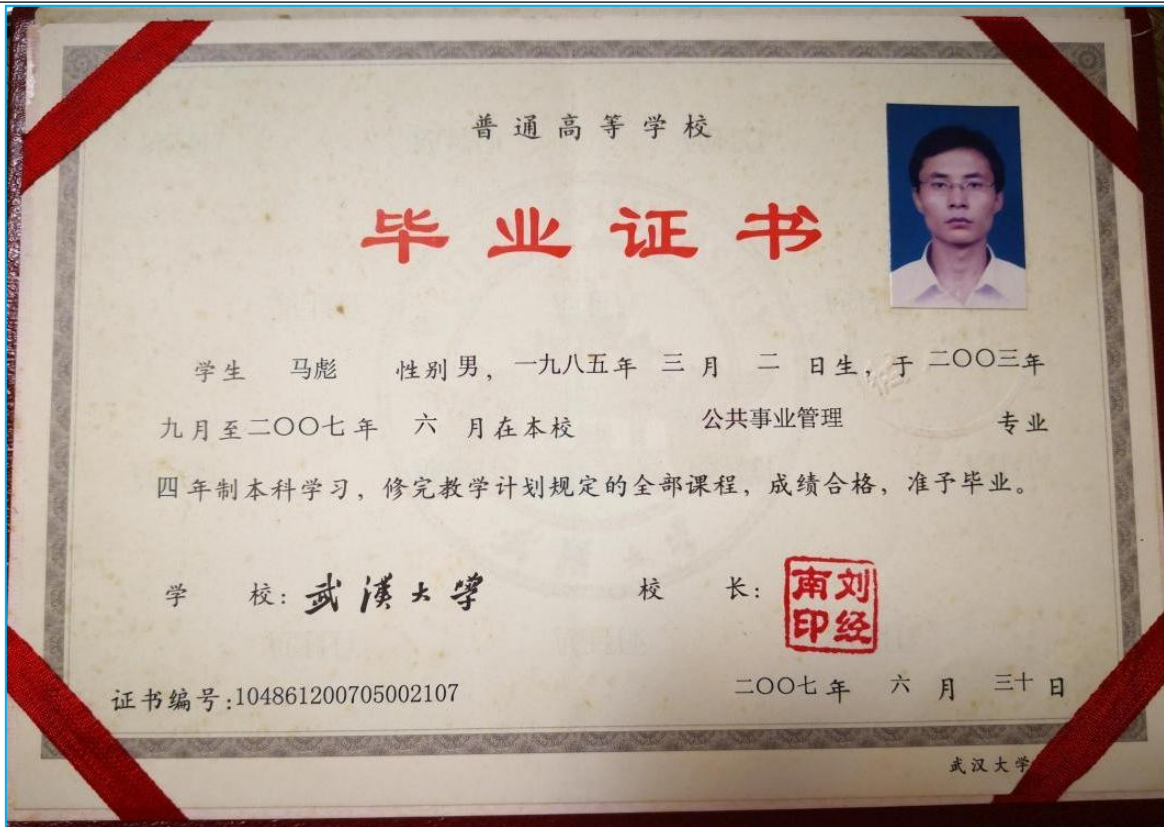 普通高等学校
毕业证书
学生 马彪 性别男，一九八五年 三月 二 日生，于二〇〇三年
九月至二〇〇七年 六 月在本校 公共事业管理 专业
四年制本科学习，修完教学计划规定的全部课程，成绩合格，准予毕业。
学 校：武漢大學 校 长：刘经南印
证书编号:104861200705002107 二〇〇七年 六 月 三十日
武汉大学